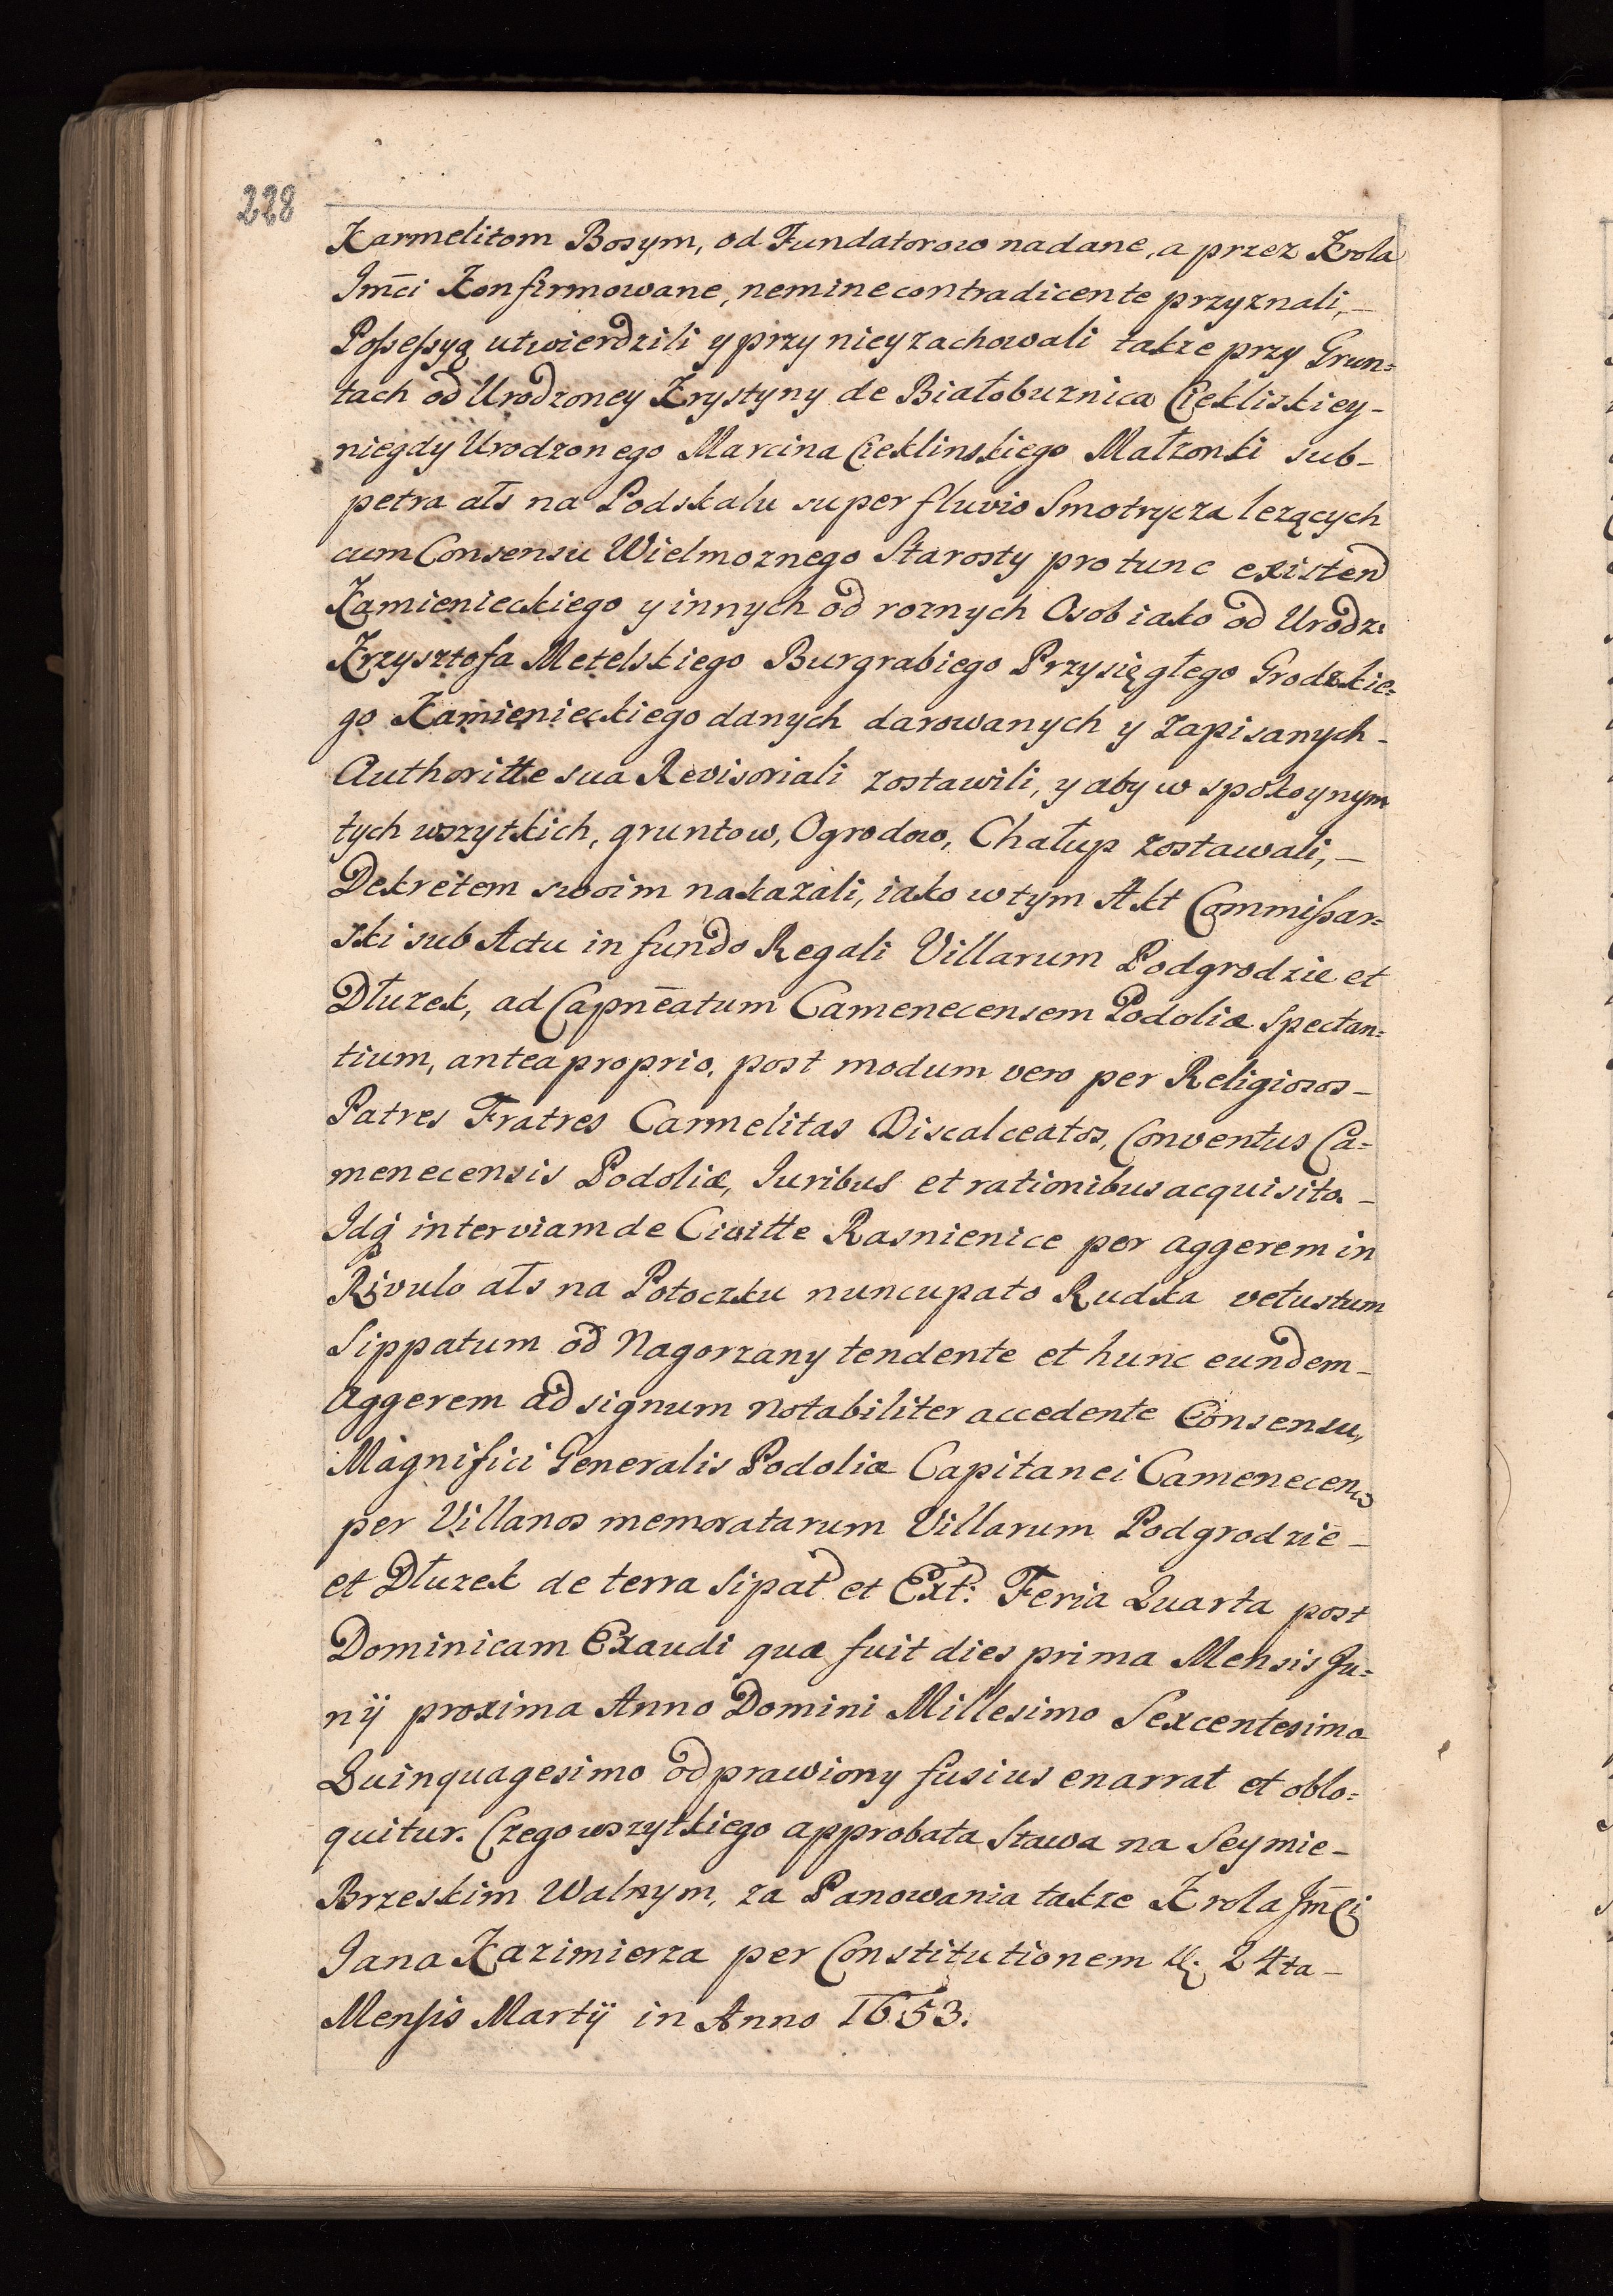 228
Karmelitom Bosym, od Fundatorow nadane, a przez Krola
Jm̄ci Konfirmowane, nemine contradicente przyznali, –
Poſseſsyą utwierdzili y przy niey zachowali takze przy Grun=
tach od Urodzoney Krystyny de Białobuznica Ciekliskiey –
niegdy Urodzonego Marcina Cieklinskiego Małzonki sub –
petra als na Podskalu super fluvio Smotrycza lezących
cum Consensu Wielmoznego Starosty pro tunc existend
Kamienieckiego y innych od roznych Osob iako od Urodz:
Krzysztofa Metelskiego Burgrabiego Przysięgłego Grodzkie=
go Kamienieckiego danych darowanych y zapisanych –
Authoritte sua Revisoriali zostawili, y aby w spokoynym
tych wszytkich, gruntow, Ogrodow, Chałup zostawali, –
Dekretem swoim nakazali, iako w tym Akt Commiſsar=
ski sub Actu in fundo Regali Villarum Podgrodzie et
Dłuzek, ad Capn̄eatum Camenecensem Podoliæ Spectan=
tium, antea proprio, post modum vero per Religiosos –
Patres Fratres Carmelitas Discalceatos, Conventus Ca=
menecensis Podoliæ, Juribus et rationibus acquisito. –
Idq̨ inter viam de Civitte Rasnienice per aggerem in
Rivulo als na Potoczku nuncupato Rudka vetustum
Sippatum od Nagorzany tendente et hunc eundem –
Aggerem ad signum notabiliter accedente Consensu,
Magnifici Generalis Podoliæ Capitanei Camenecens
per Villanos memoratarum Villarum Podgrodzie –
et Dłuzek de terra Sipat et Ext: Feria Quarta post
Dominicam Exaudi quæ fuit dies prima Mensis Ju=
nij proxima Anno Domini Millesimo Sexcentesimo
Quinquagesimo odprawiony fusius enarrat et oblo=
quitur. Czego wszytkiego approbata stawa na Seymie –
Brzeskim Walnym, za Panowania takze Krola Jm̄ci
Jana Kazimierza per Constitutionem 24ta –
Menſis Martij in Anno 1653.